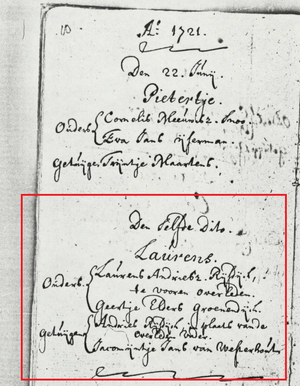 Aº 1721.
Den 22. Junij.
Pietertje.
Ouders Cornelis Meeuwsz.
Eva Jans Nijferman.
Getuijge. Trijntje Maartens.
Den Selfde Dito.
Laurens.
Ouders. Laurens Andriesz. Rijsdijk,
te vooren overleden.
Geertje Elders Groenendijk.
Getuijgen Andries Rijsdijk, in plaats vande
overleden Vader.
Jacomijntje Jans van Westerhout